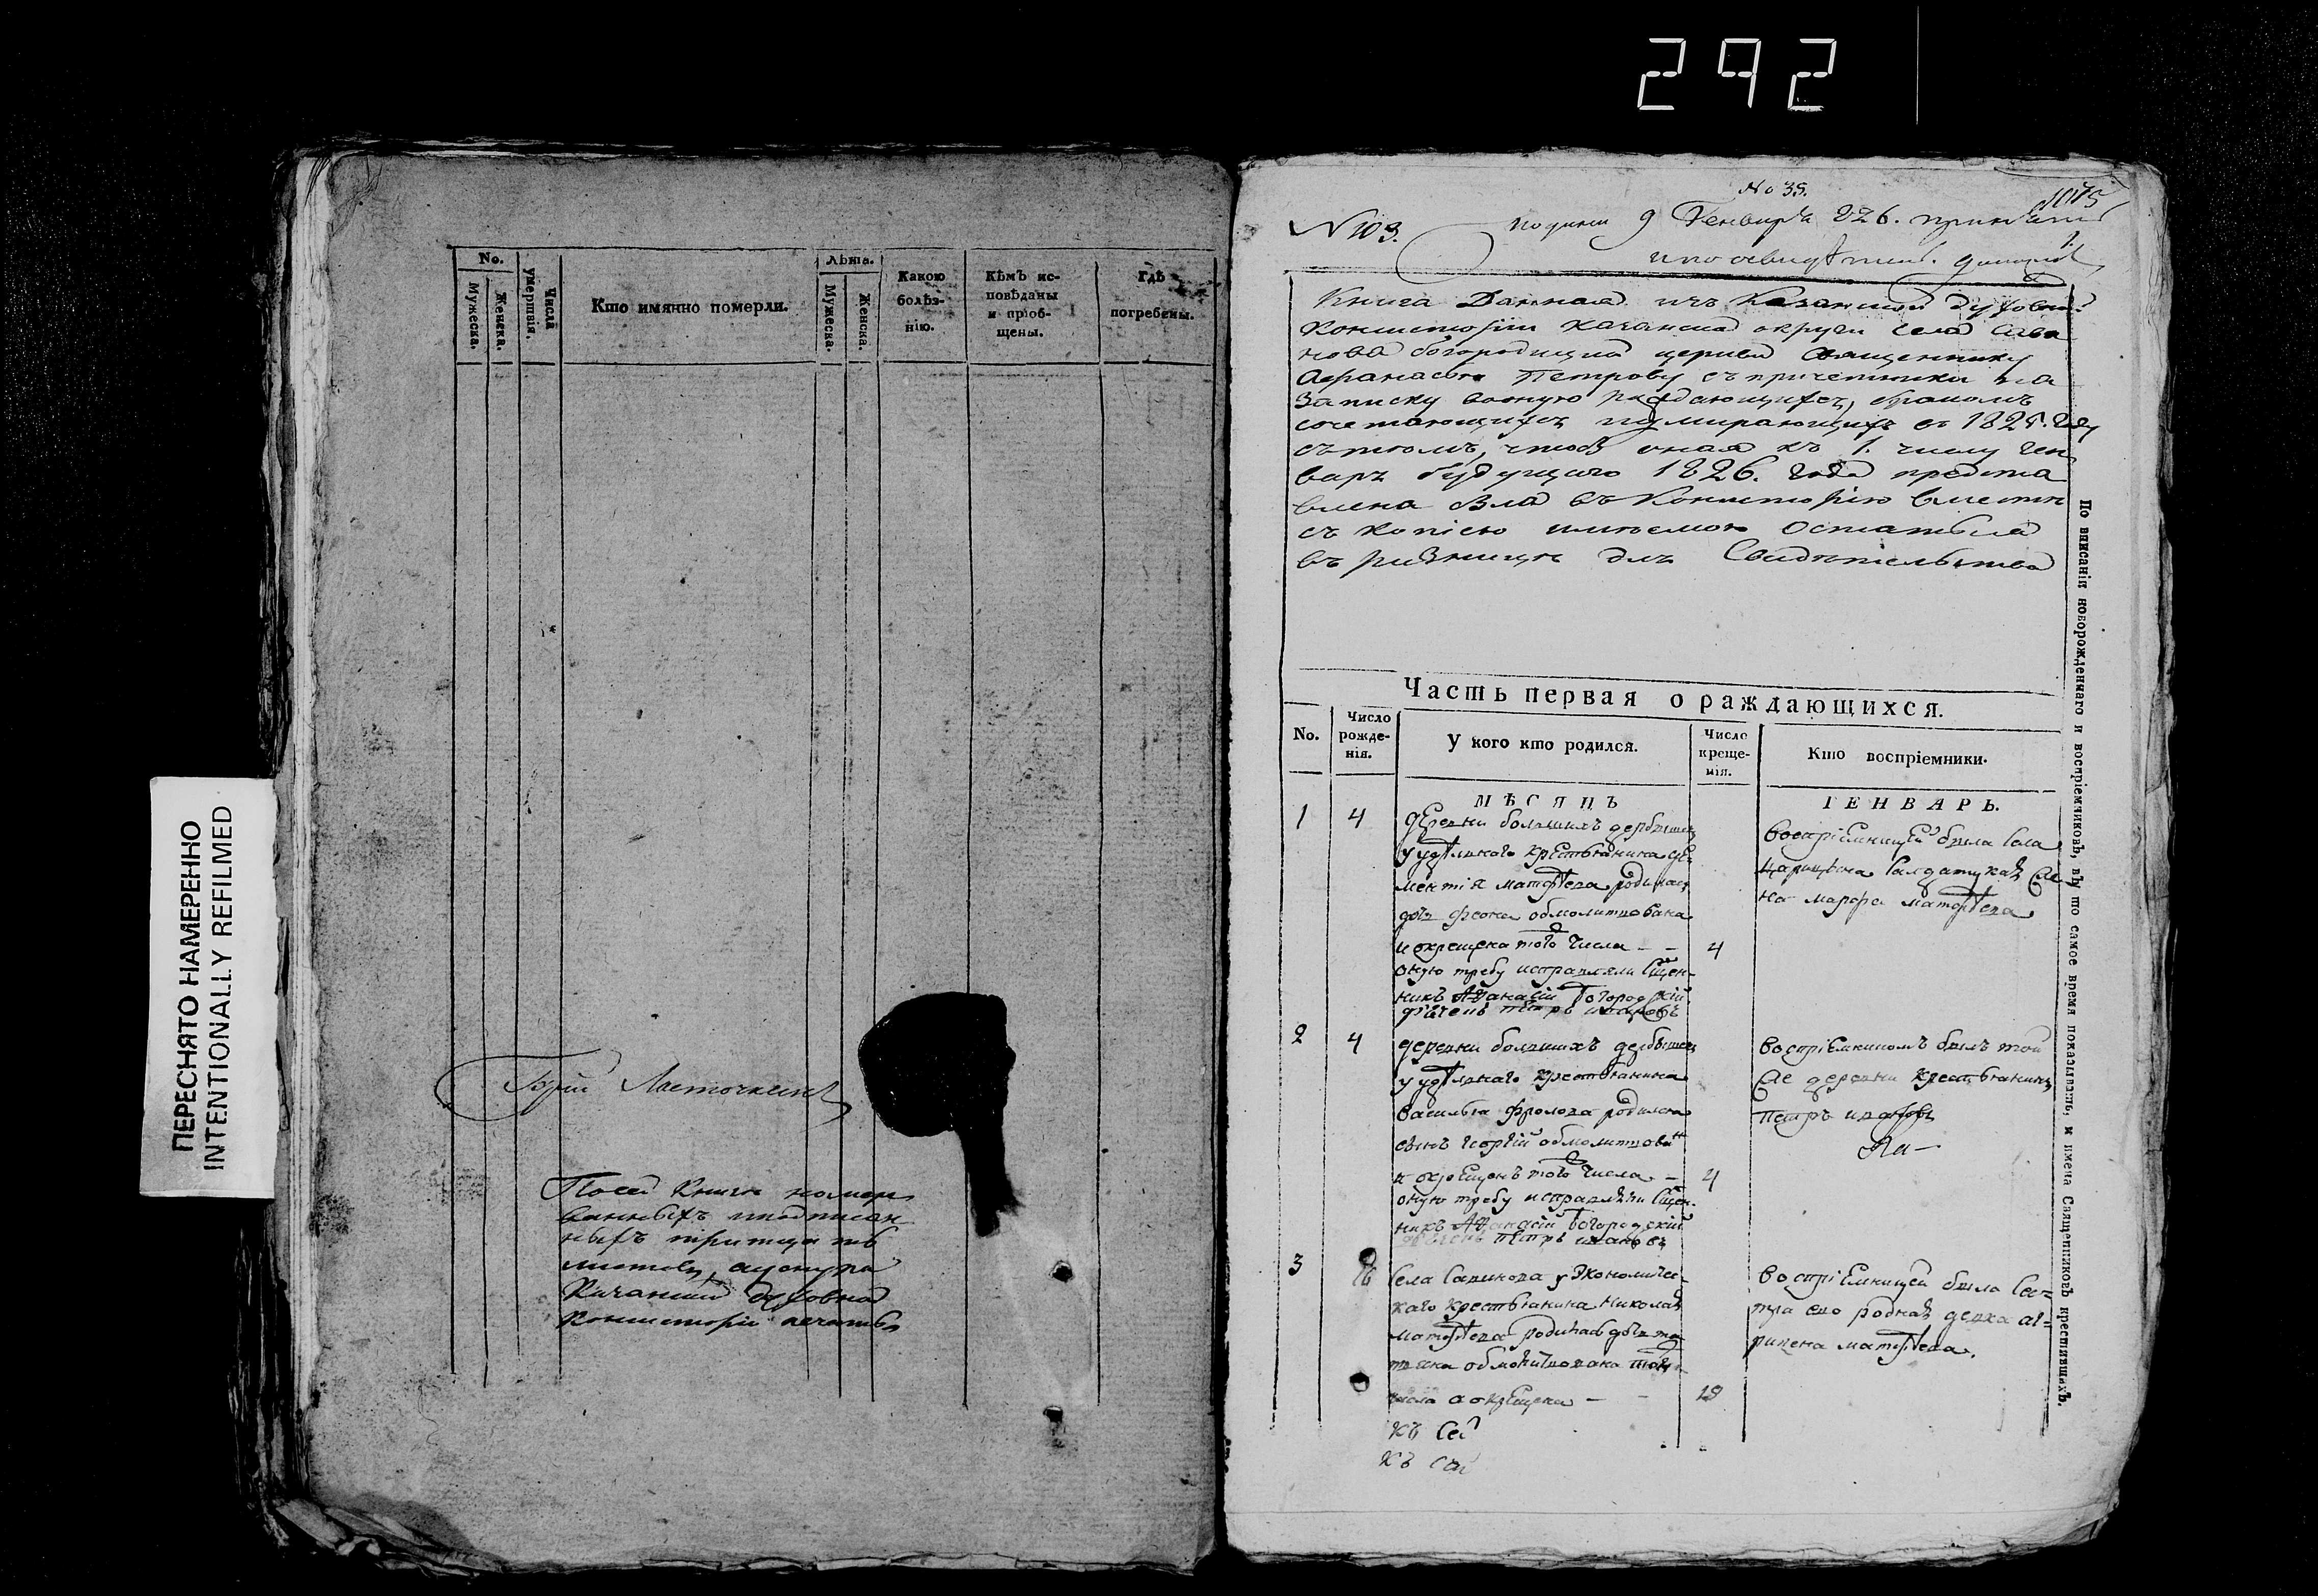 292
ПЕРЕСНЯТО НАМЕРЕННО
INTENTIONALLY REFILMED
No.
Мужеска.
Женска.
Числа умертвія.
Кто имянно померли.
Лѣта.
Мужеска.
Женска.
Какою болѣз-
нію.
Кѣмъ ис-
повѣданы
и пріоб-
щены.
Гдѣ
погребены.
Гурій Ласточкинъ
По сей Книгѣ номеро
ванныхъ подписан
ныхъ тритцать
листовъ, а у снура
Казанской духовной
Консисторіи печать
No 35.
N 103.
9 Генваря 826.
Книга Данная изъ Казанской духовной
Консисторіи Казанской округи села Сави
нова богородицкой церкви Священнику
Афанасью Петрову съ причетники на
Записку вѣрную раждающихся, бракомъ
сочетающихся и умирающихъ въ 1825. году
съ тѣмъ, чтобъ оная къ 1. числу Ген
варя будущаго 1826. года предста
влена была въ Консисторію вместѣ
съ копіею имѣемою остаться
въ ризницѣ для Свидѣтельства
Часть первая о раждающихся.
No.
Число
рожде-
нія.
У кого кто родился.
Число
креще-
нія.
Кто воспріемники.
МѢСЯЦЪ
ГЕНВАРЬ.
1 4 деревни большихъ дербышекъ
у удѣлнаго крестьянина де
ментія матфѣева родилась
дочь феона обмолитвована
и окрещена того числа – – 4
оную требу исправляли Сщен-
никъ Афанасій Богородскій
дьячень петръ
воспріемницей была села
царицына салдатукая же
на марфа матфѣева
2 4 деревни большихъ дербышекъ
у удѣлнаго крестьянина
василья фролова родился
сынъ георгій обмолитвован
и окрещенъ того числа – 4
оную требу исправляли Сщен-
никъ Афанасій Богородскій
петръ ивановъ
воспріемникомъ былъ той
же деревни крестьянинъ
петръ
3 села савинова у экономичес-
каго крестьянина николая
матфѣева родилась дочь та
тіяна обмолитвована того
числа а окрещена – – 18
къ сей
къ сей
воспріемницей была сес-
тра его родная девка аг-
рипена матфѣева.
По вписаніи новорожденнаго и воспріемниковъ, въ то самое время показывать, и имена Священниковъ крестившихъ.